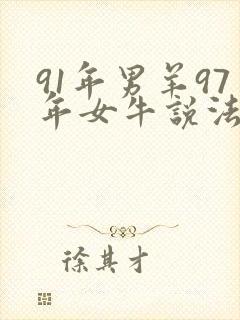 91年男羊97
年女牛說法
徐其才